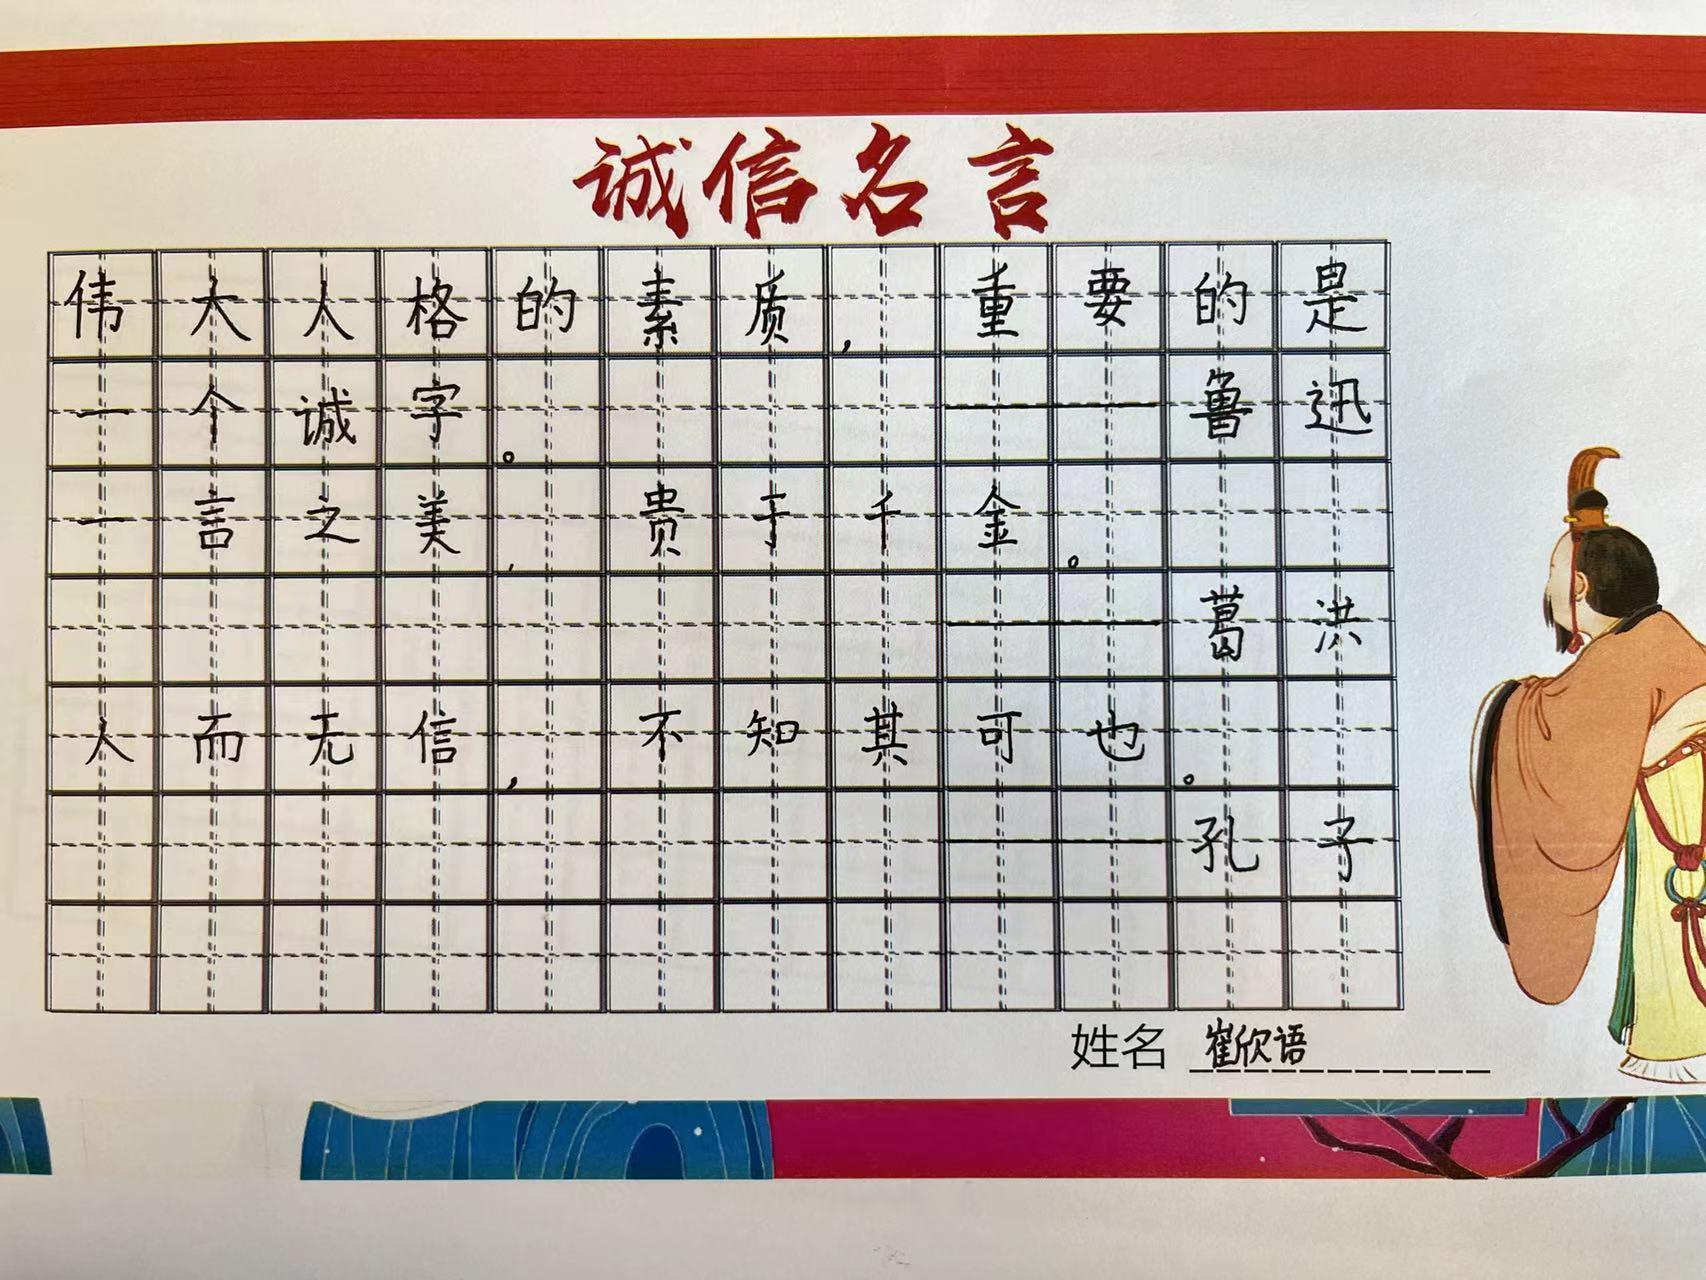 诚信名言
伟大人格的素质，重要的是
一个诚字。——鲁迅
一言之美，贵于千金。
——葛洪
人而无信，不知其可也。
——孔子
姓名 崔欣语